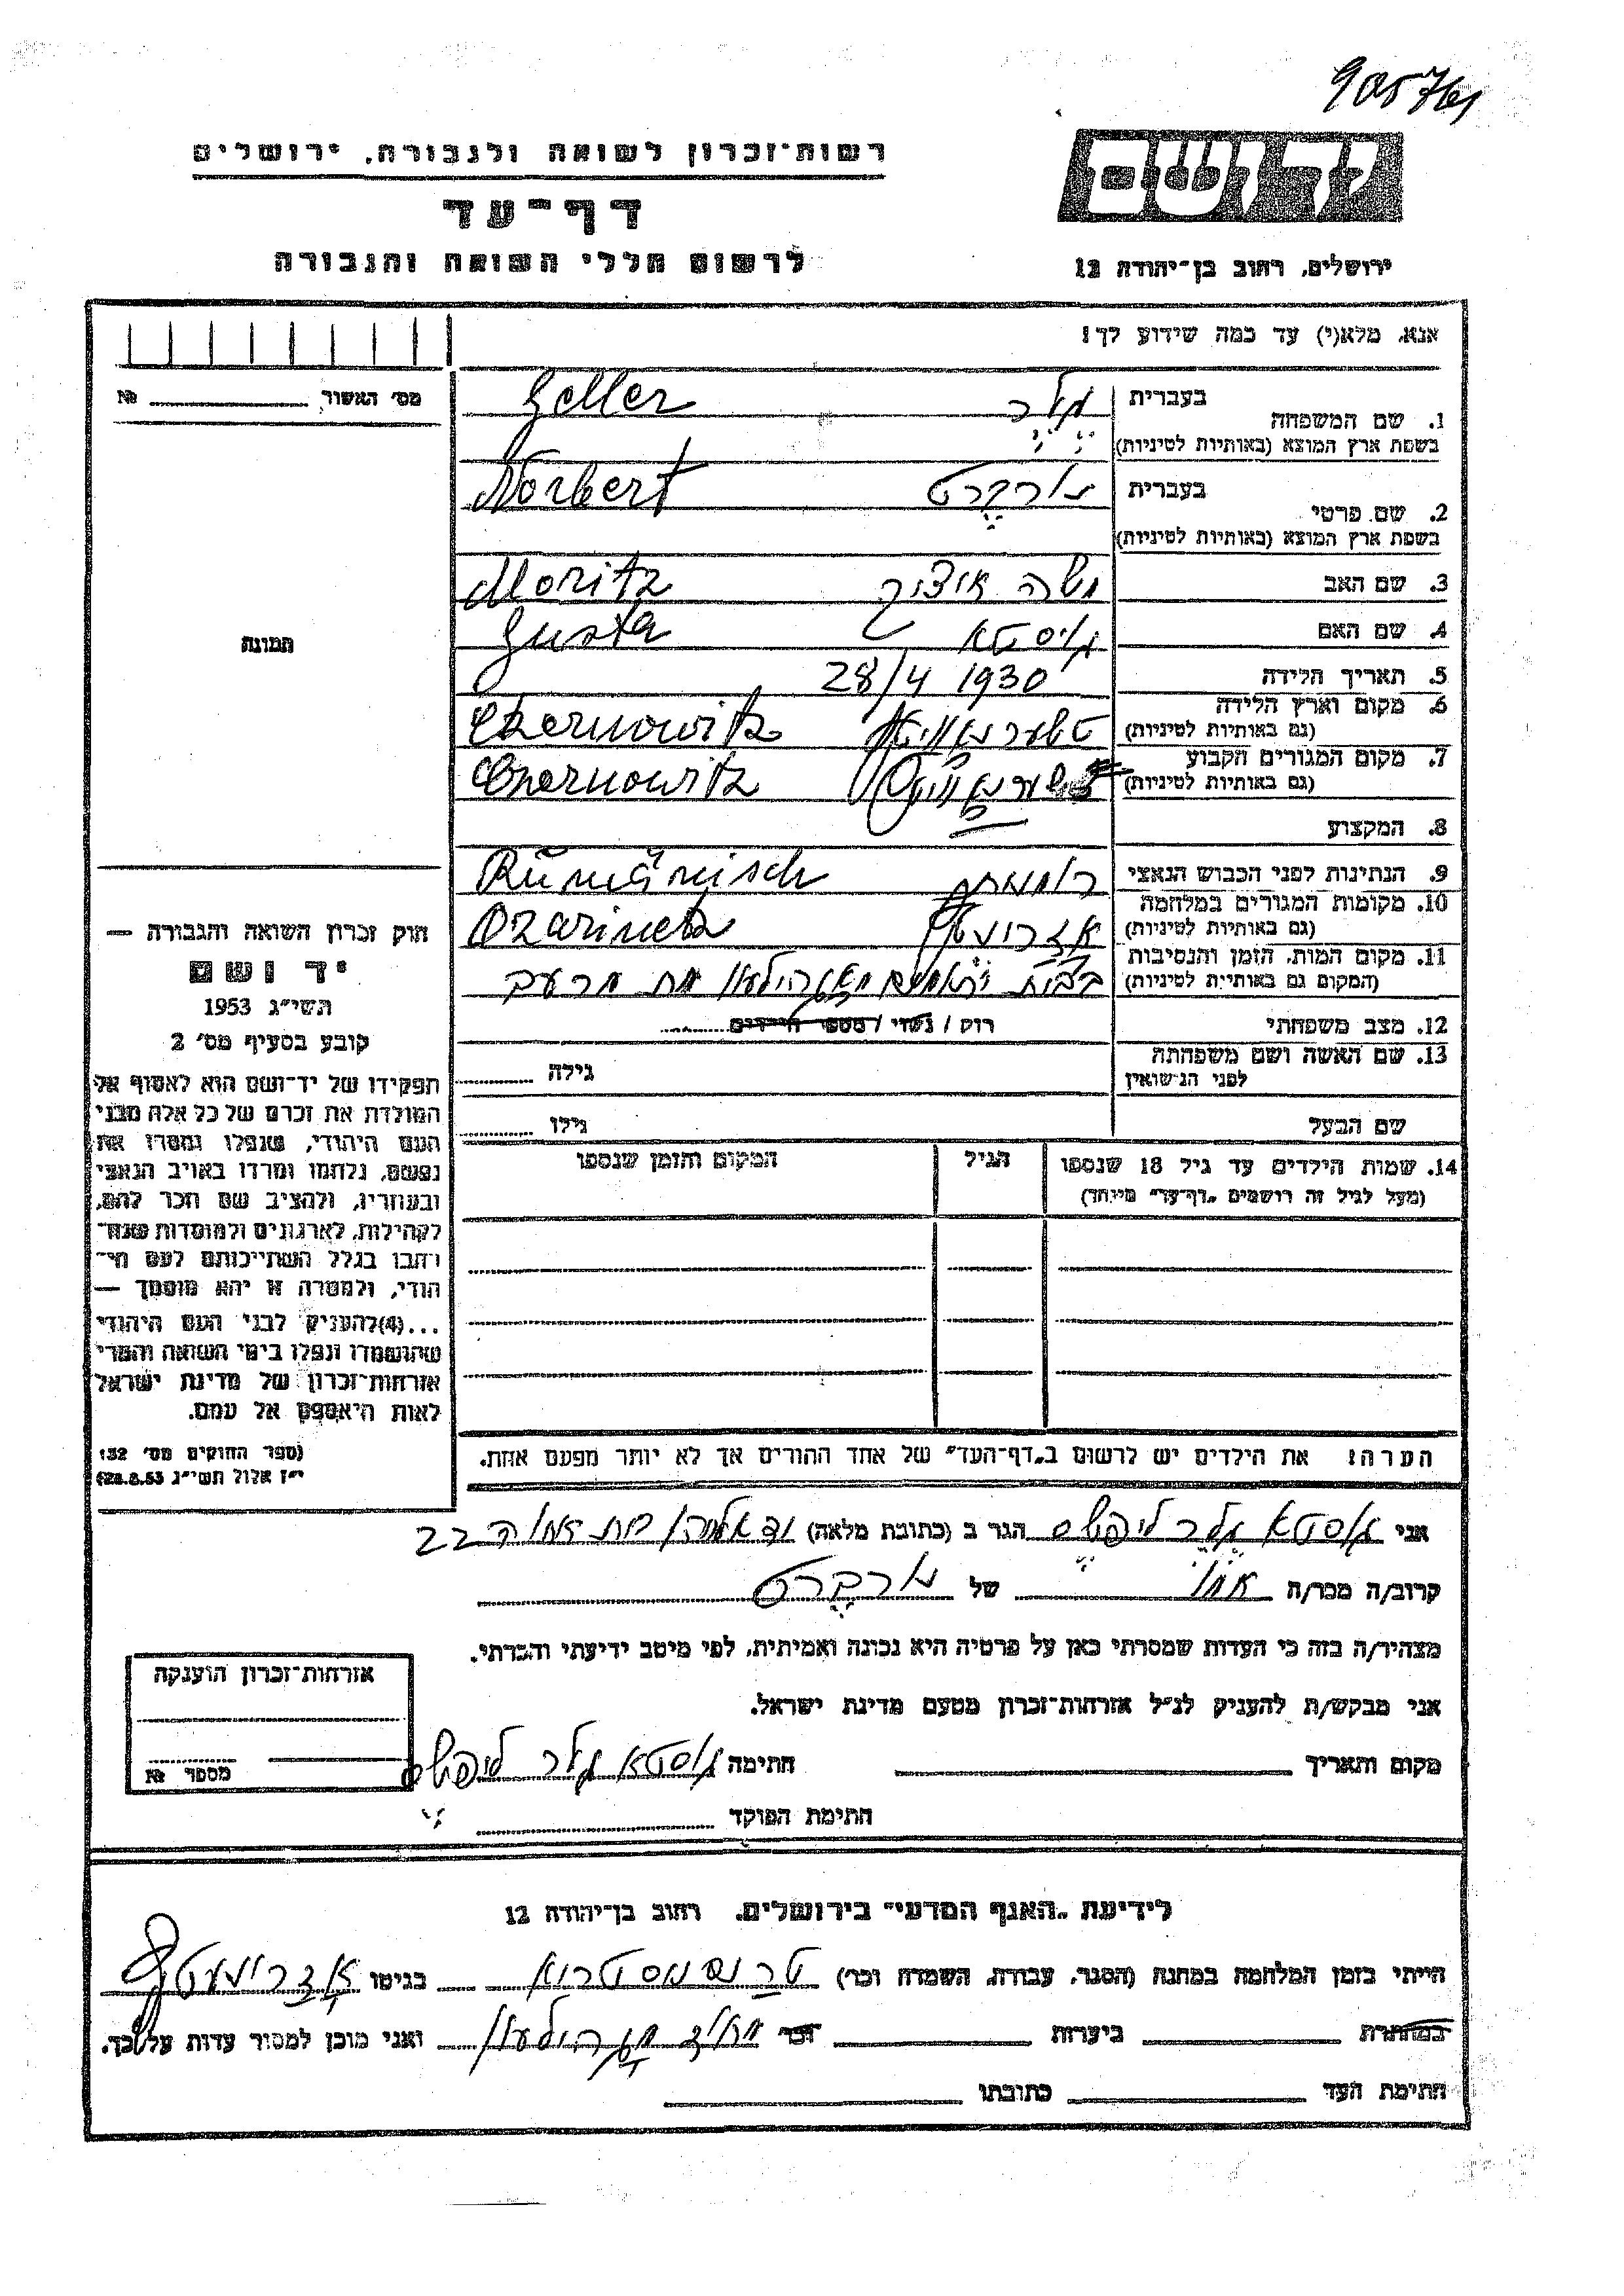 905761
רשות־זכרון לשואה ולגבורה, ירושלים
דף־עד
לרשום חללי השואה והגבורה
יד ושם
ירושלים, רחוב בן־יהודה 12
אנא, מלא(י) עד כמה שידוע לך!
מס׳ האשור № 
1. שם המשפחה בעברית גלר Geller
בשפת ארץ המוצא (באותיות לטיניות)
2. שם פרטי בעברית נורברט Norbert
בשפת ארץ המוצא (באותיות לטיניות)
3. שם האב משה איציק Moritz
4. שם האם גוסטא Gusta
5. תאריך הלידה 28/4 1930
6. מקום וארץ הלידה Czernowitz
(גם באותיות לטיניות)
7. מקום המגורים הקבוע Czernowitz
(גם באותיות לטיניות)
8. המקצוע
9. הנתינות לפני הכבוש הנאצי Rumänisch
10. מקומות המגורים במלחמה Ozarinetz
(גם באותיות לטיניות)
11. מקום המות, הזמן והנסיבות בבית יתומים מוגילעוו מת מרעב
(המקום גם באותיות לטיניות)
12. מצב משפחתי רווק / נשוי / מספר הילדים
13. שם האשה ושם משפחתה גילה
לפני הנישואין
שם הבעל גילו
14. שמות הילדים עד גיל 18 שנספו הגיל המקום והזמן שנספו
(מעל לגיל זה רושמים „דף־עד״ מיוחד)
הערה: את הילדים יש לרשום ב„דף־העד״ של אחד ההורים אך לא יותר מפעם אחת.
תמונה
חוק זכרון השואה והגבורה —
יד ושם
תשי״ג 1953
קובע בסעיף מס׳ 2
תפקידו של יד־ושם הוא לאסוף אל
המולדת את זכרם של כל אלה מבני
העם היהודי, שנפלו ומסרו את
נפשם, נלחמו ומרדו באויב הנאצי
ובעוזריו, ולהציב שם וזכר להם,
לקהילות, לארגונים ולמוסדות שנח־
רבו בגלל השתייכותם לעם הי־
הודי, ולמטרה זו יהא מוסמך —
...(4) להעניק לבני העם היהודי
שהושמדו ונפלו בימי השואה והמרי
אזרחות־זכרון של מדינת ישראל
לאות היאספם אל עמם.
(ספר החוקים מס׳ 132
י״ז אלול תשי״ג 28.8.53)
אני גוסטא גלר ליפשיץ הגר ב (כתובת מלאה) 22
קרוב/ה מכר/ה של נורברט
מצהיר/ה בזה כי העדות שמסרתי כאן על פרטיה היא נכונה ואמיתית, לפי מיטב ידיעתי והכרתי.
אני מבקש/ת להעניק לנ״ל אזרחות־זכרון מטעם מדינת ישראל.
מקום ותאריך חתימה גוסטא גלר ליפשיץ
חתימת הפוקד
אזרחות־זכרון הוענקה
מספר №
לידיעת „האגף המדעי״ בירושלים, רחוב בן־יהודה 12
הייתי בזמן המלחמה במחנה (הסגר, עבודה, השמדה וכו׳) טרנסניסטריא בגיטו
במחתרת ביערות וכו׳ ואני מוכן למסור עדות על כך.
חתימת העד כתובתו